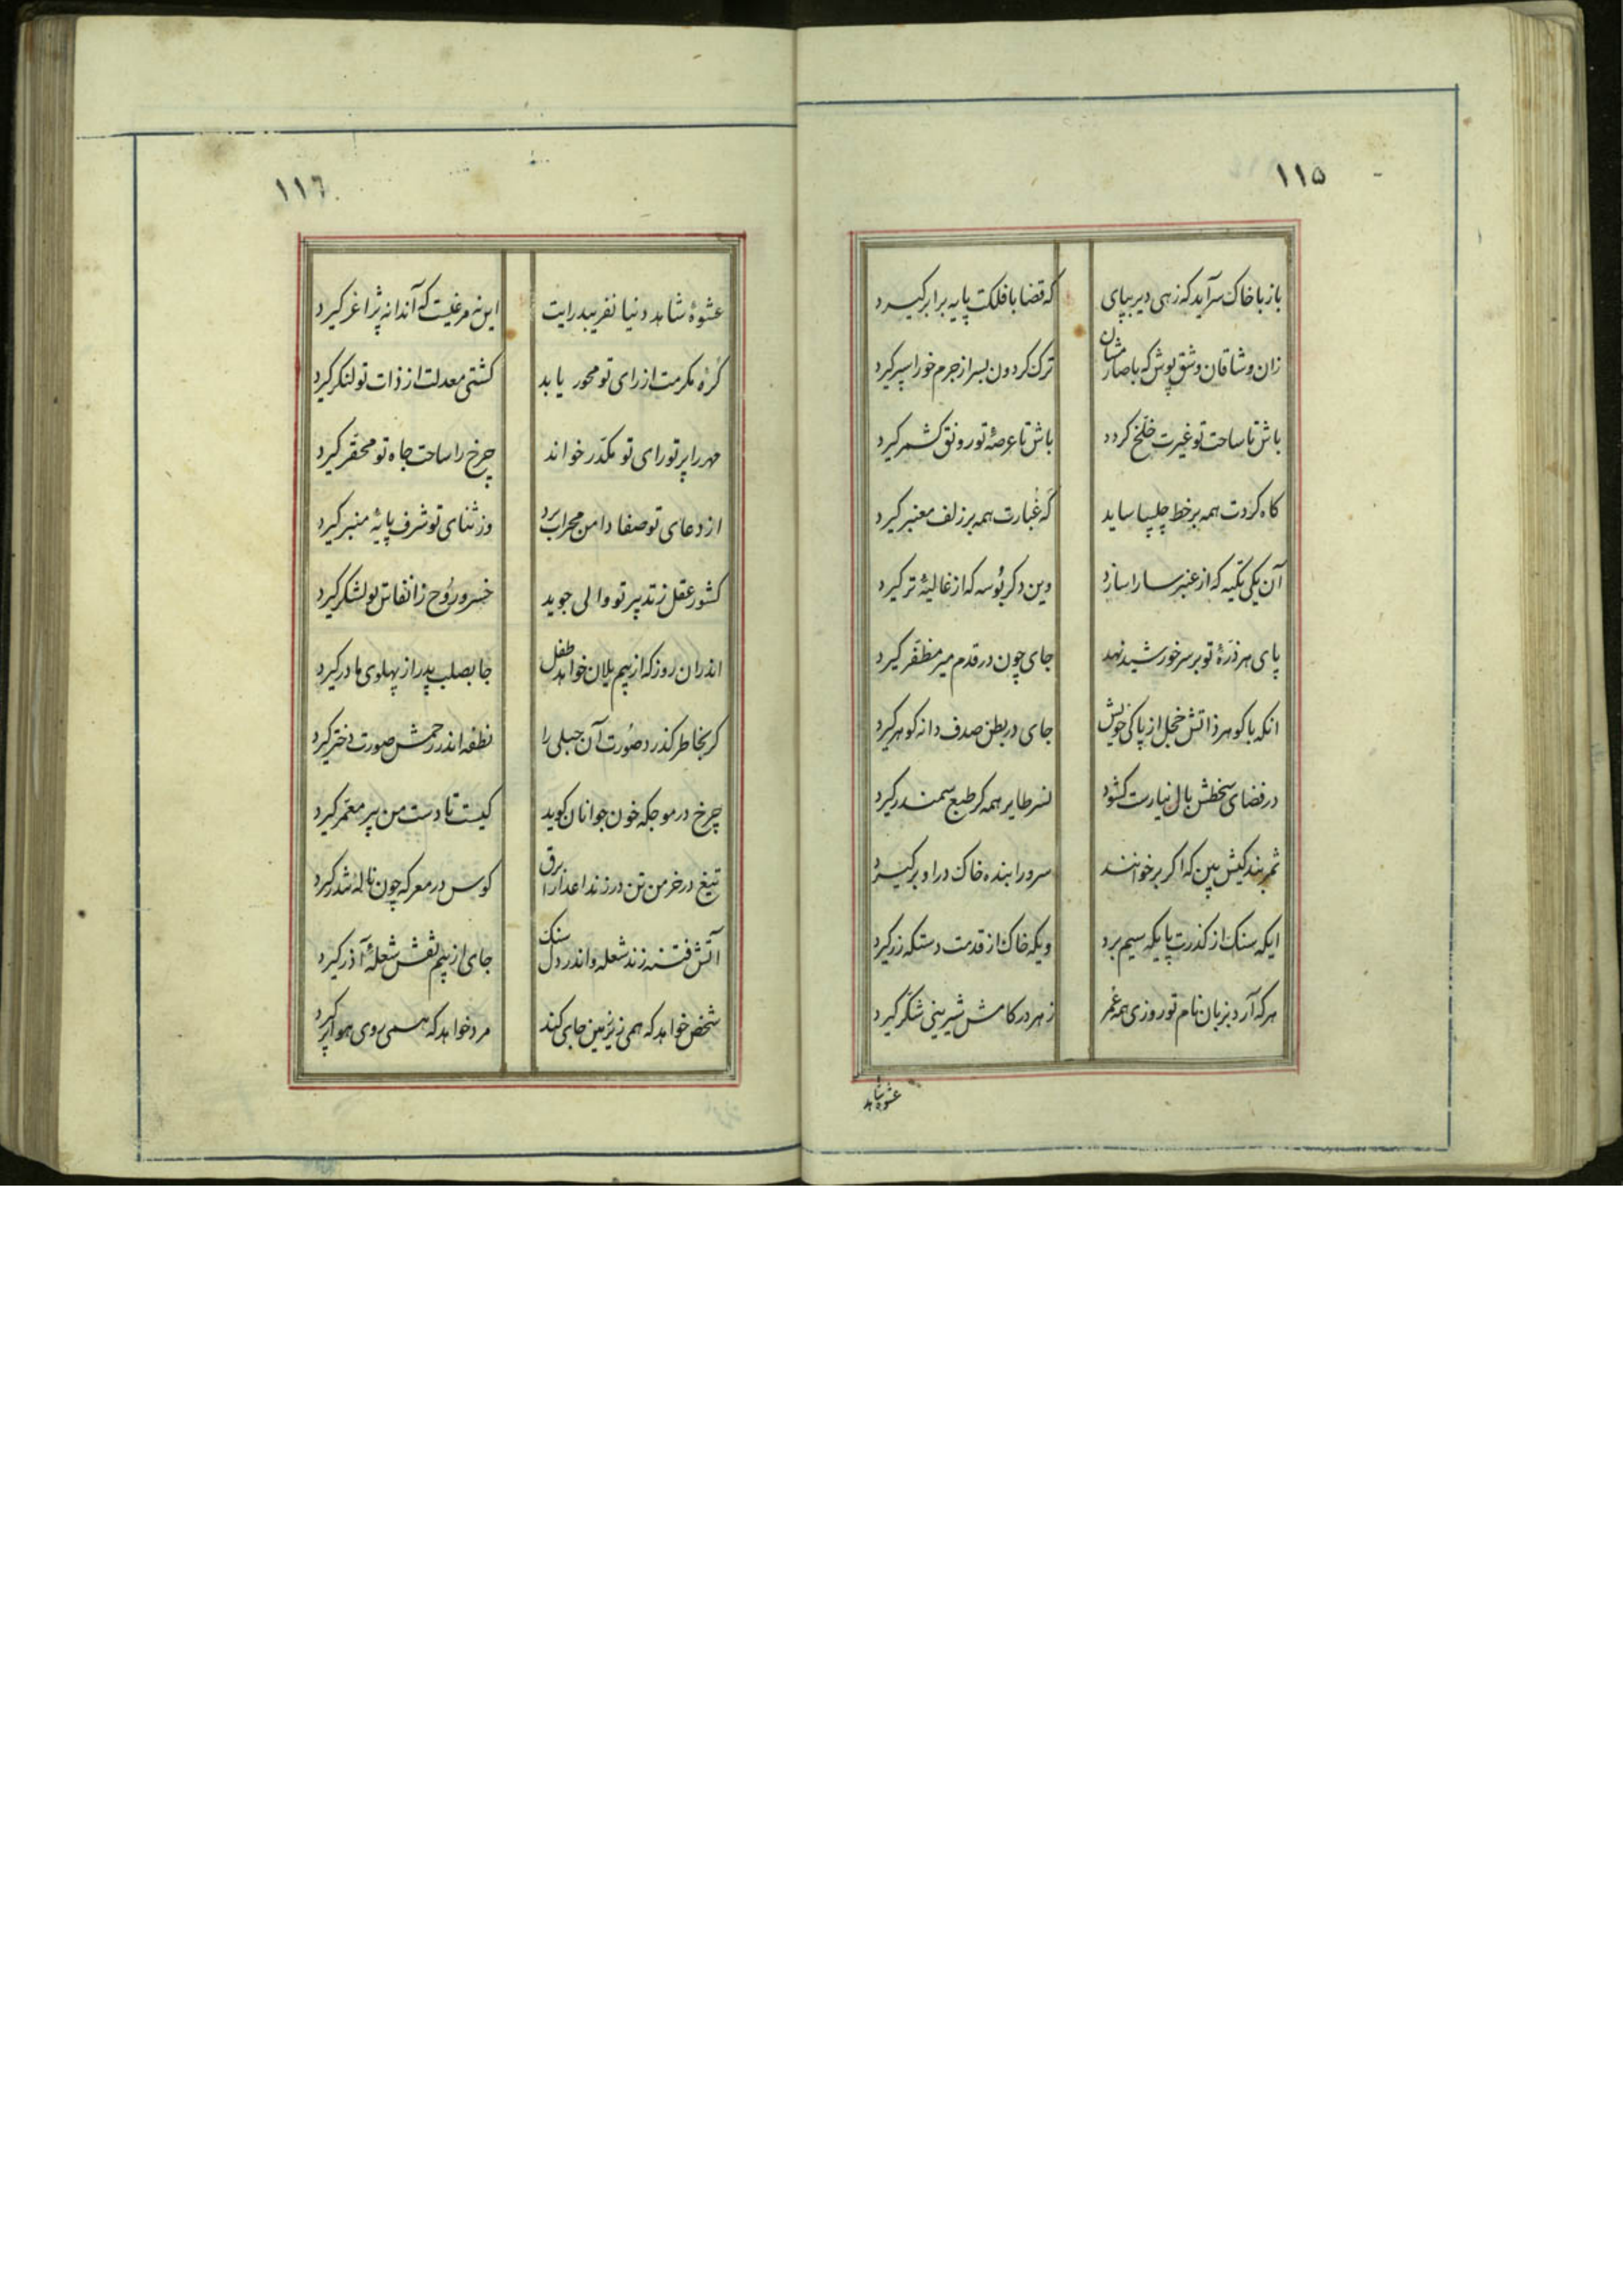 ۱۱۵
باز با خاک سرآید که زهی دیر بپای که قضا با فلکت پایه برابر گیرد
زان وشاقان وشق پوش که باصارشان ترک کردون بسر از جرم خور اسپر گیرد
باش تا ساحت تو غیرت خلخ کردد باش تا عرصهٔ تو رونق کشمر گیرد
کاه کردت همه بر خط چلیپا ساید که غبارت همه بر زلف معنبر گیرد
آن یکی تکیه که از عنبر سارا سازد وین دکر بوسه که از غالیهٔ تر گیرد
پای هر ذرهٔ تو بر سر خورشید نهد جای چون در قدم میر مظفر گیرد
انکه با کوهر ذاتش خجل از پاکی خویش جای در بطن صدف دانه کوهر گیرد
در فضای سخطش بال نیارست کشود نسر طایر همه کر طبع سمندر گیرد
ثمر بندکیش بین که اکر برخوانند سرو را بنده خاک در او بر گیرد
ایکه سنک از کذرت پایکه سیم برد ویکه خاک از قدمت دستکه زر گیرد
هر که آرد بزبان نام تو روزی همه عمر زهر در کامش شیرینی شکر گیرد
عشوه شاهد
۱۱٦
عشوهٔ شاهد دنیا نفریبد رایت این نه مرغیست که آن دانه بژاغر گیرد
کرهٔ مکرمت از رای تو محور یابد کشتی معدلت از ذات تو لنکر گیرد
مهر را پرتو رای تو مکدر خواند چرخ را ساحت جاه تو محقر گیرد
از دعای تو صفا دامن محراب برد وز ثنای تو شرف پایهٔ منبر گیرد
کشور عقل ز تدبیر تو والی جوید خسرو روح ز انفاس تو لشکر گیرد
اندران روز که از بیم یلان خواهد طفل جا بصلب پدر از پهلوی مادر گیرد
کر بخاطر کذرد صورت آن حبلی را نطفه اندر رحمش صورت دختر گیرد
چرخ در موجکه خون جوانان کوید کیست تا دست من پیر معمر گیرد
تیغ در خرمن تن در زند اعدا را برق کوس در معرکه چون نالهٔ تندر گیرد
آتش فتنه زند شعله و اندر دل سنک جای از بیم تفش شعلهٔ آذر گیرد
شخص خواهد که همی زیر زمین جای کند مرد خواهد که همی روی هوا پر گیرد